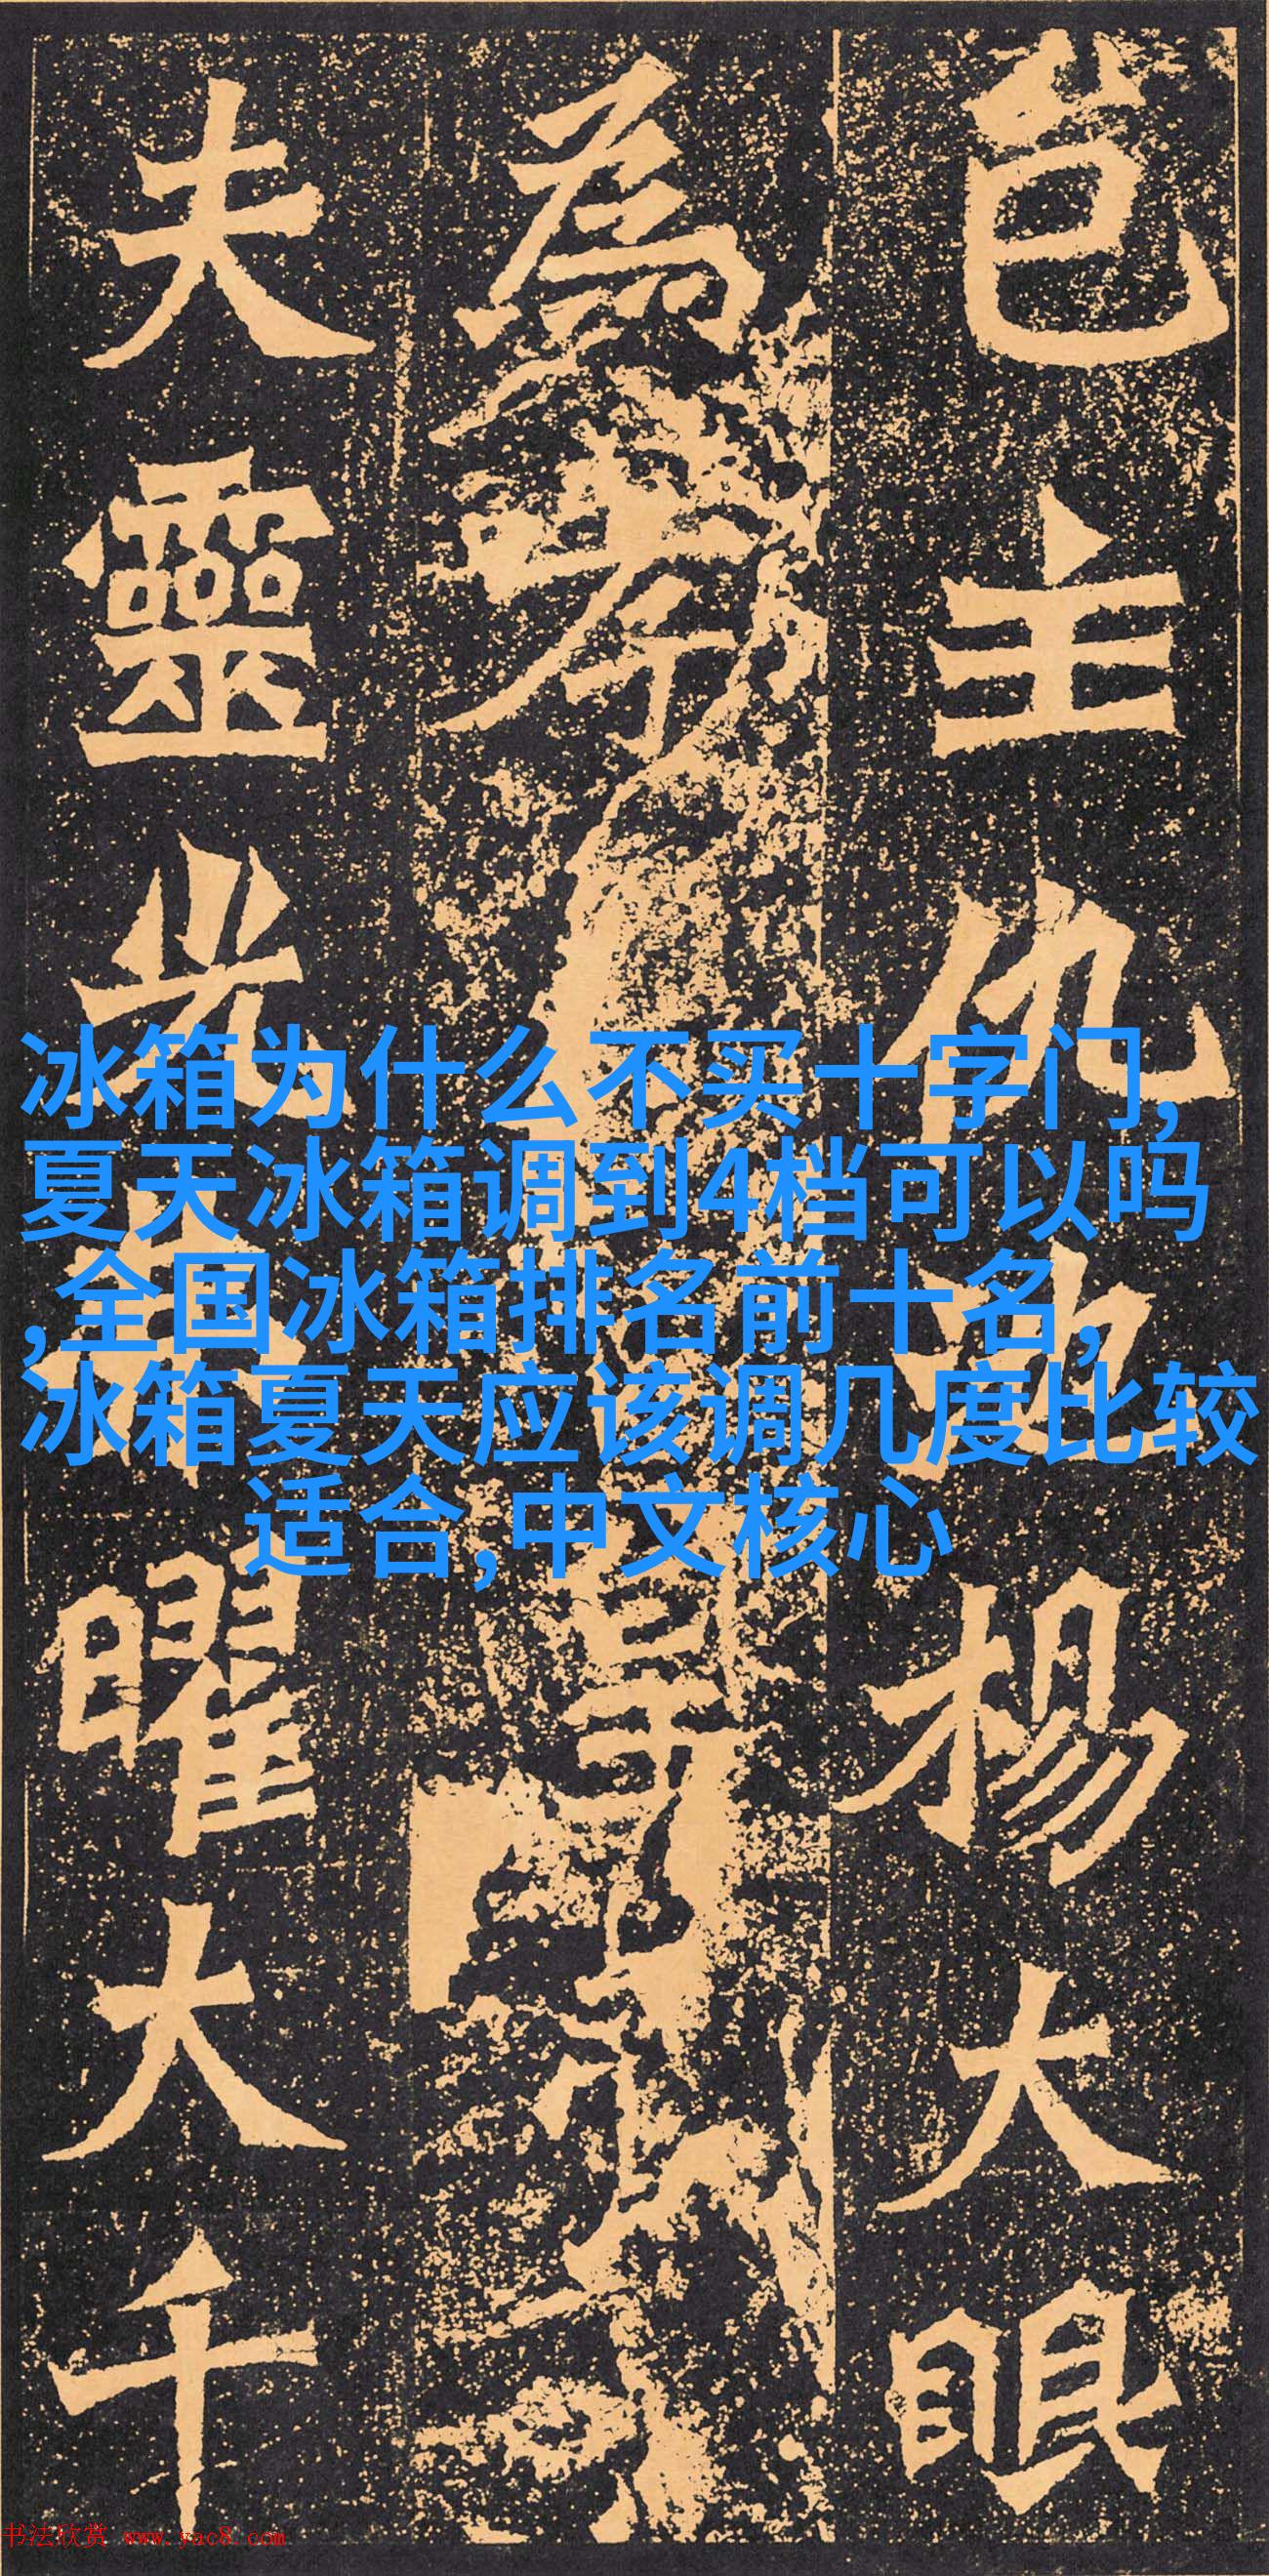 邑主仇池楊大眼
為孝皇帝
夫靈光弗曜大千
冰箱为什么不买十字门,
夏天冰箱调到4档可以吗
,全国冰箱排名前十名,
冰箱夏天应该调几度比较
适合,中文核心
书法欣赏 www.yac8.com